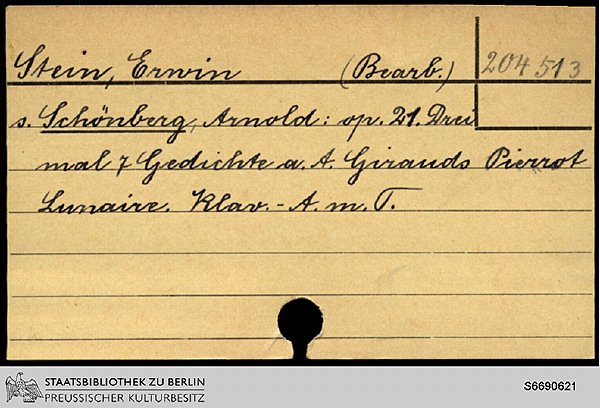 Stein, Erwin (Bearb.) 204 513
s. Schönberg, Arnold: op. 21. Drei
mal 7 Gedichte a. A. Girauds Pierrot
Lunaire. Klav.-A. m. T.
STAATSBIBLIOTHEK ZU BERLIN
PREUSSISCHER KULTURBESITZ
S6690621